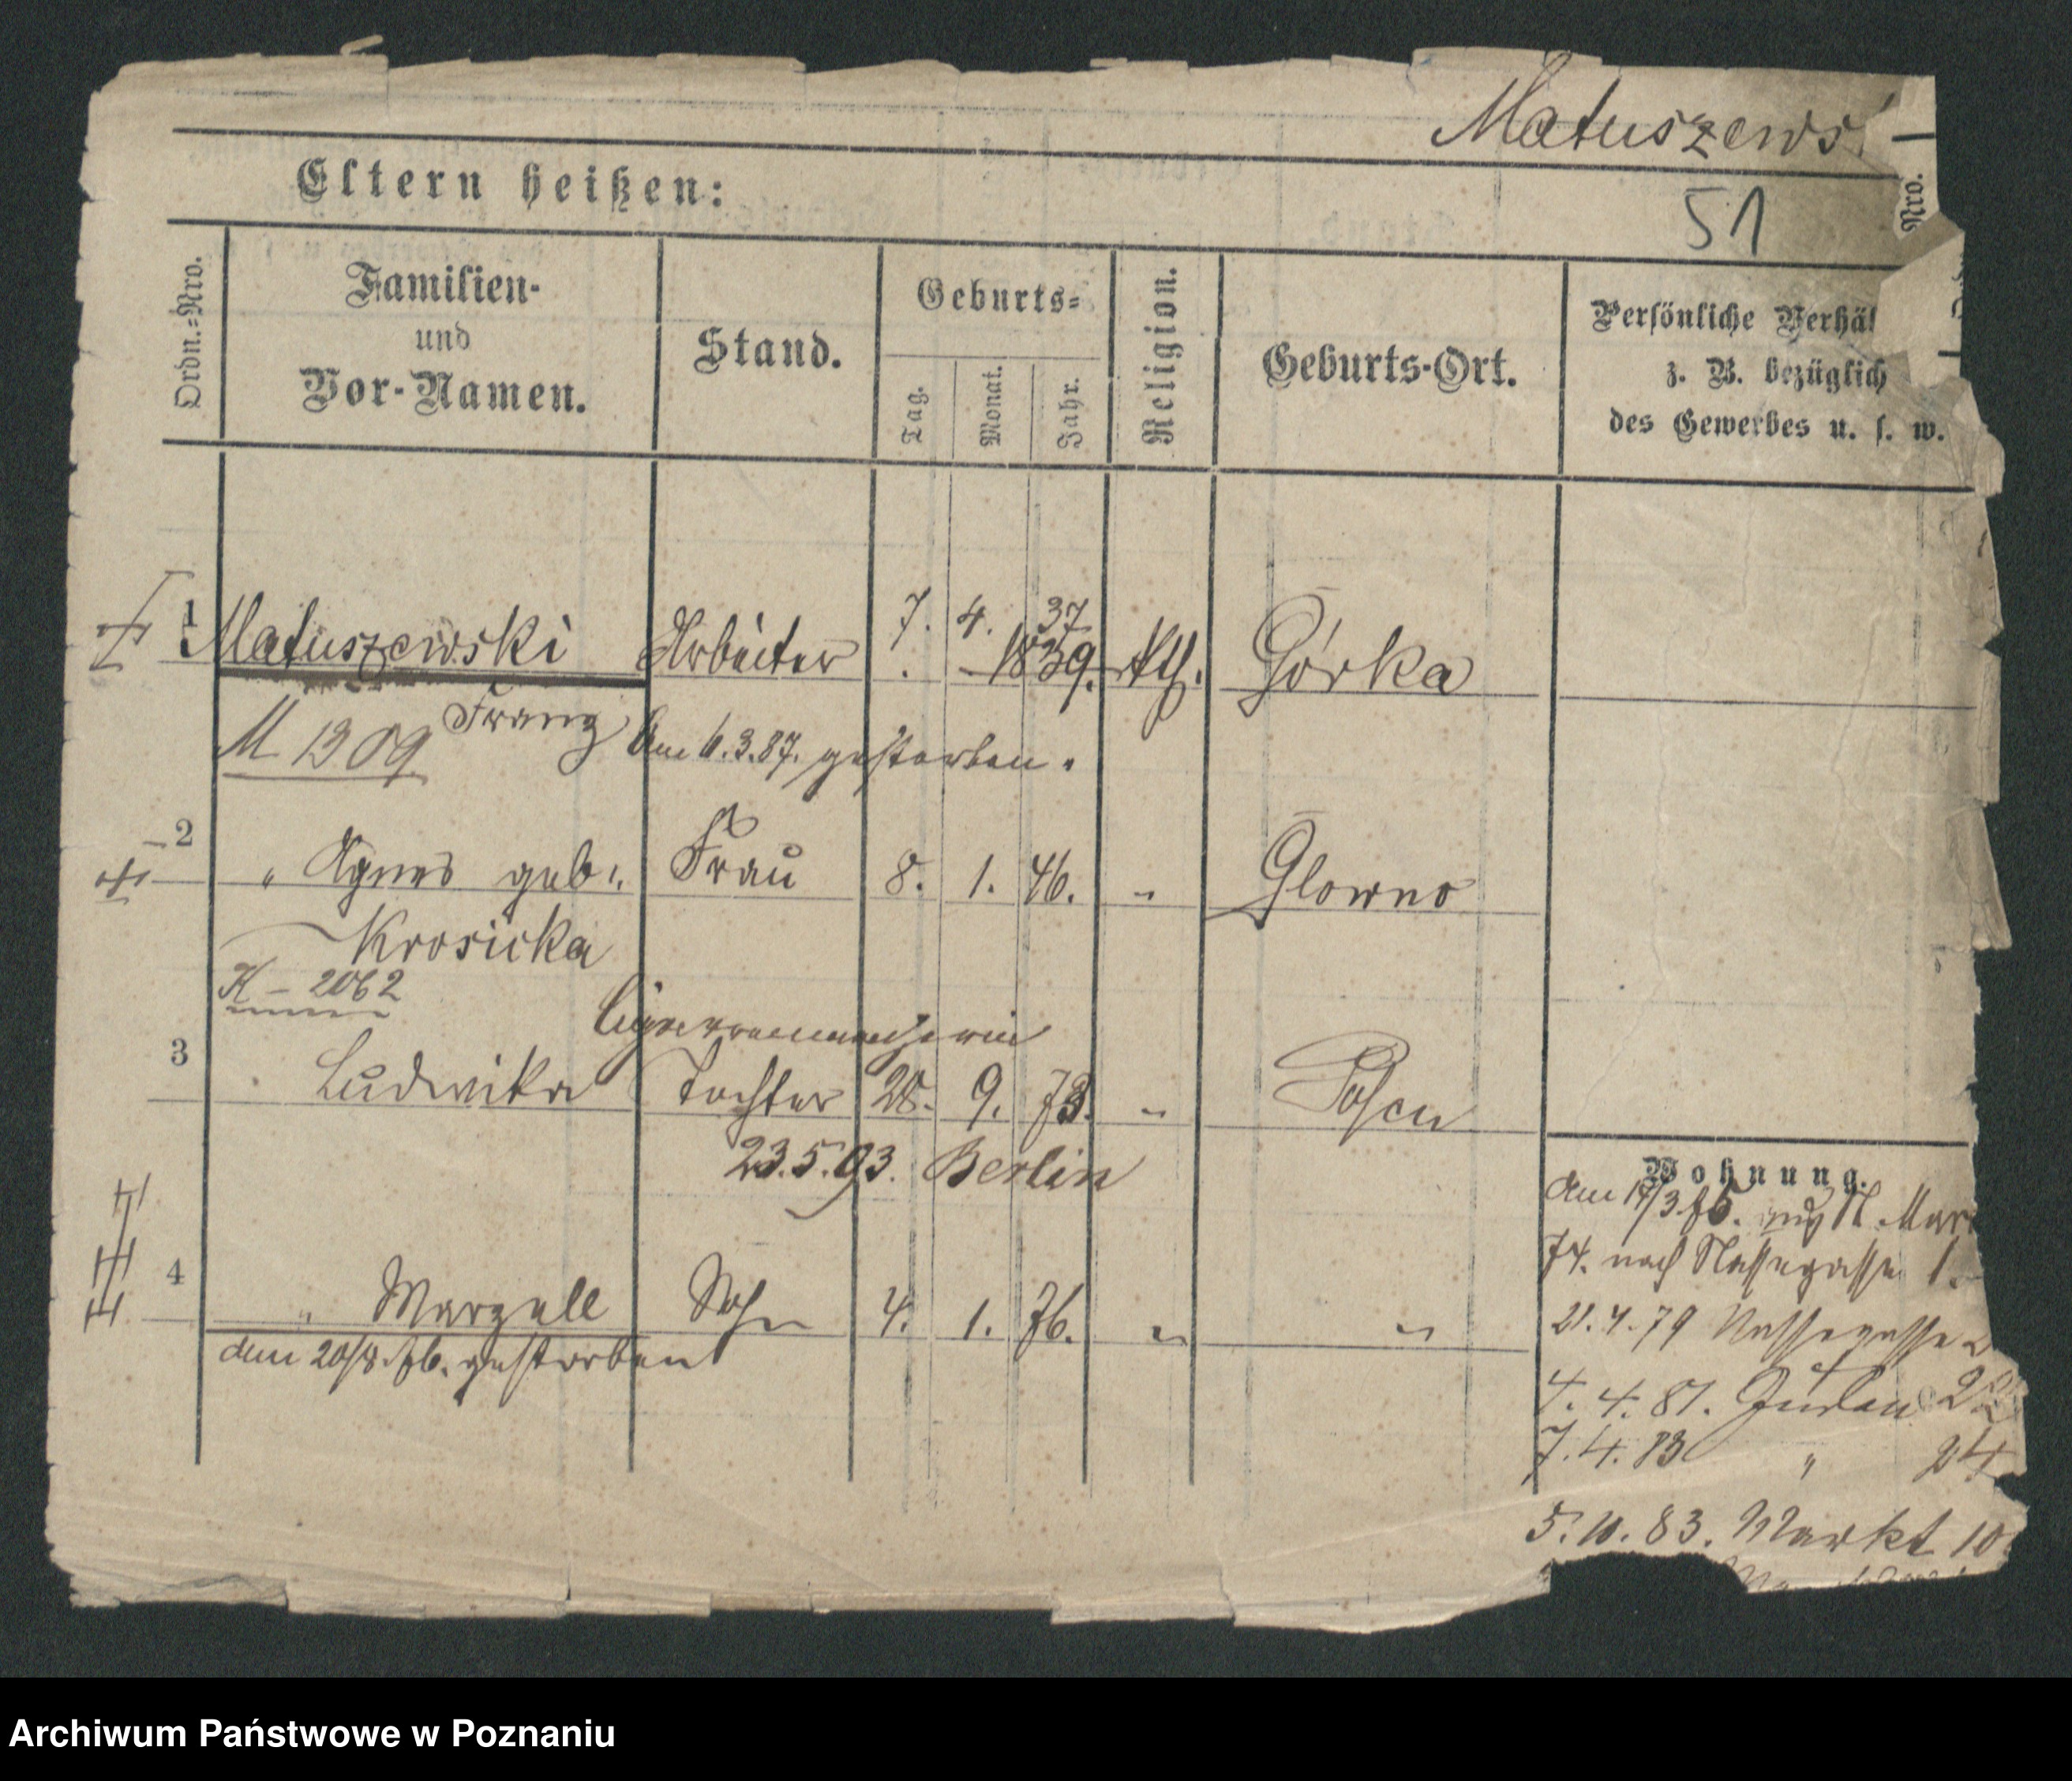 Matuszews
Eltern heißen:
51
Nro.
Ordn.=Nro.
Familien-
und
Vor-Namen.
Stand.
Geburts=
Tag.
Monat.
Jahr.
Religion.
Geburts-Ort.
Persönliche Verhäl
z. B. bezüglich
des Gewerbes u. s. w.
1 Matuszewski Arbeiter 7. 4. 37 1839. Kth. Górka
Franz
M 1309 Am 6.3.87. gestorben.
2 " Agnes geb. Frau 8. 1. 46. " Glowno
Krosicka
K - 2062
Cigarrenmacherin
3 Ludwika Tochter 28. 9. 73. " Posen
23.5.93. Berlin
4 " Marzell Sohn 4. 1. 76. " "
den 20/8.76. gestorben
Wohnung.
Am 17/3.76. Mar
74. nach Nassegasse 1.
21.4.79 Nassegasse 2
4. 4. 81. Juden 2
7. 4. 83 " 24
5. 10. 83. Markt 10
Archiwum Państwowe w Poznaniu